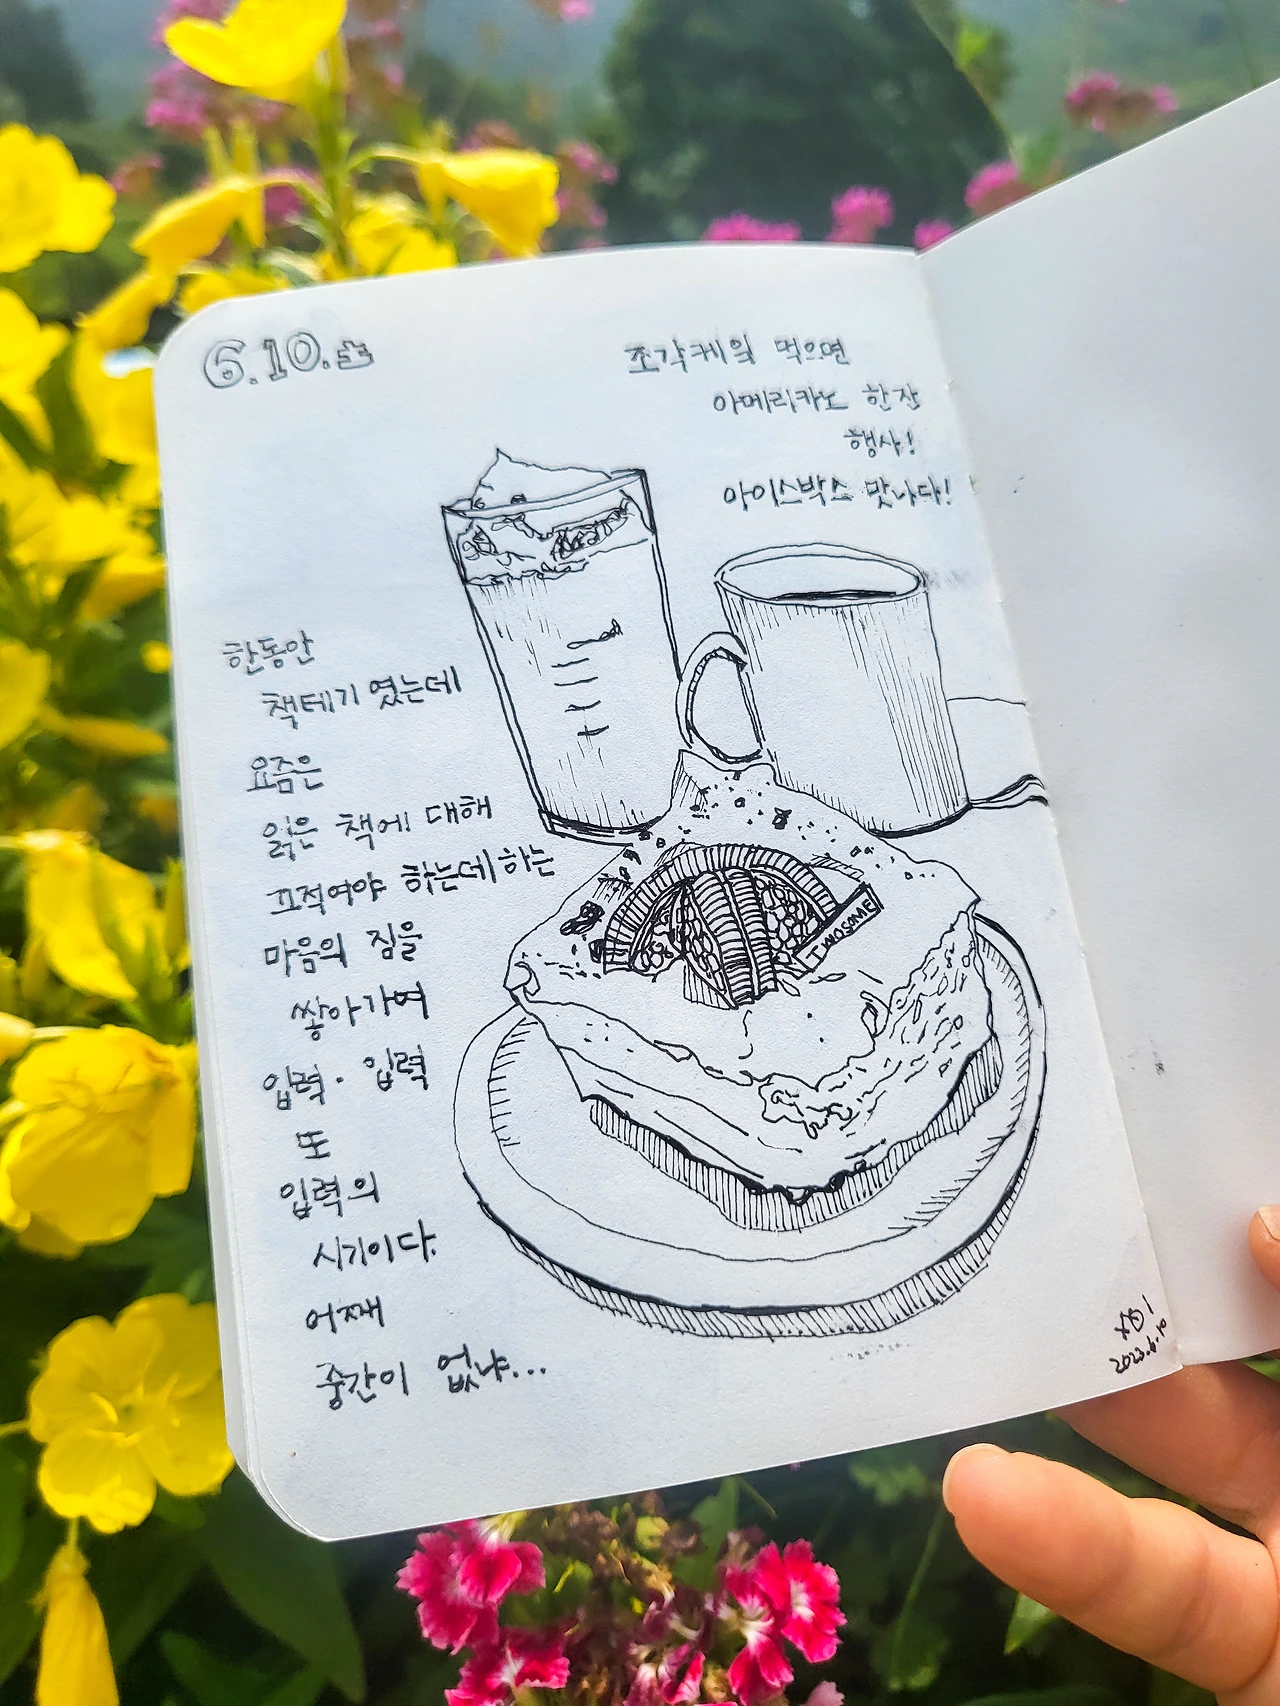 6.10.土
조각케잌 먹으면
아메리카노 한잔
행사!
아이스박스 맛나다!
한동안
책테기 였는데
요즘은
읽은 책에 대해
끄적여야 하는데 하는
마음의 짐을
쌓아가며
입력· 입력
또
입력의
시기이다.
어째
중간이 없냐...
TWOSOME
2023.6.10